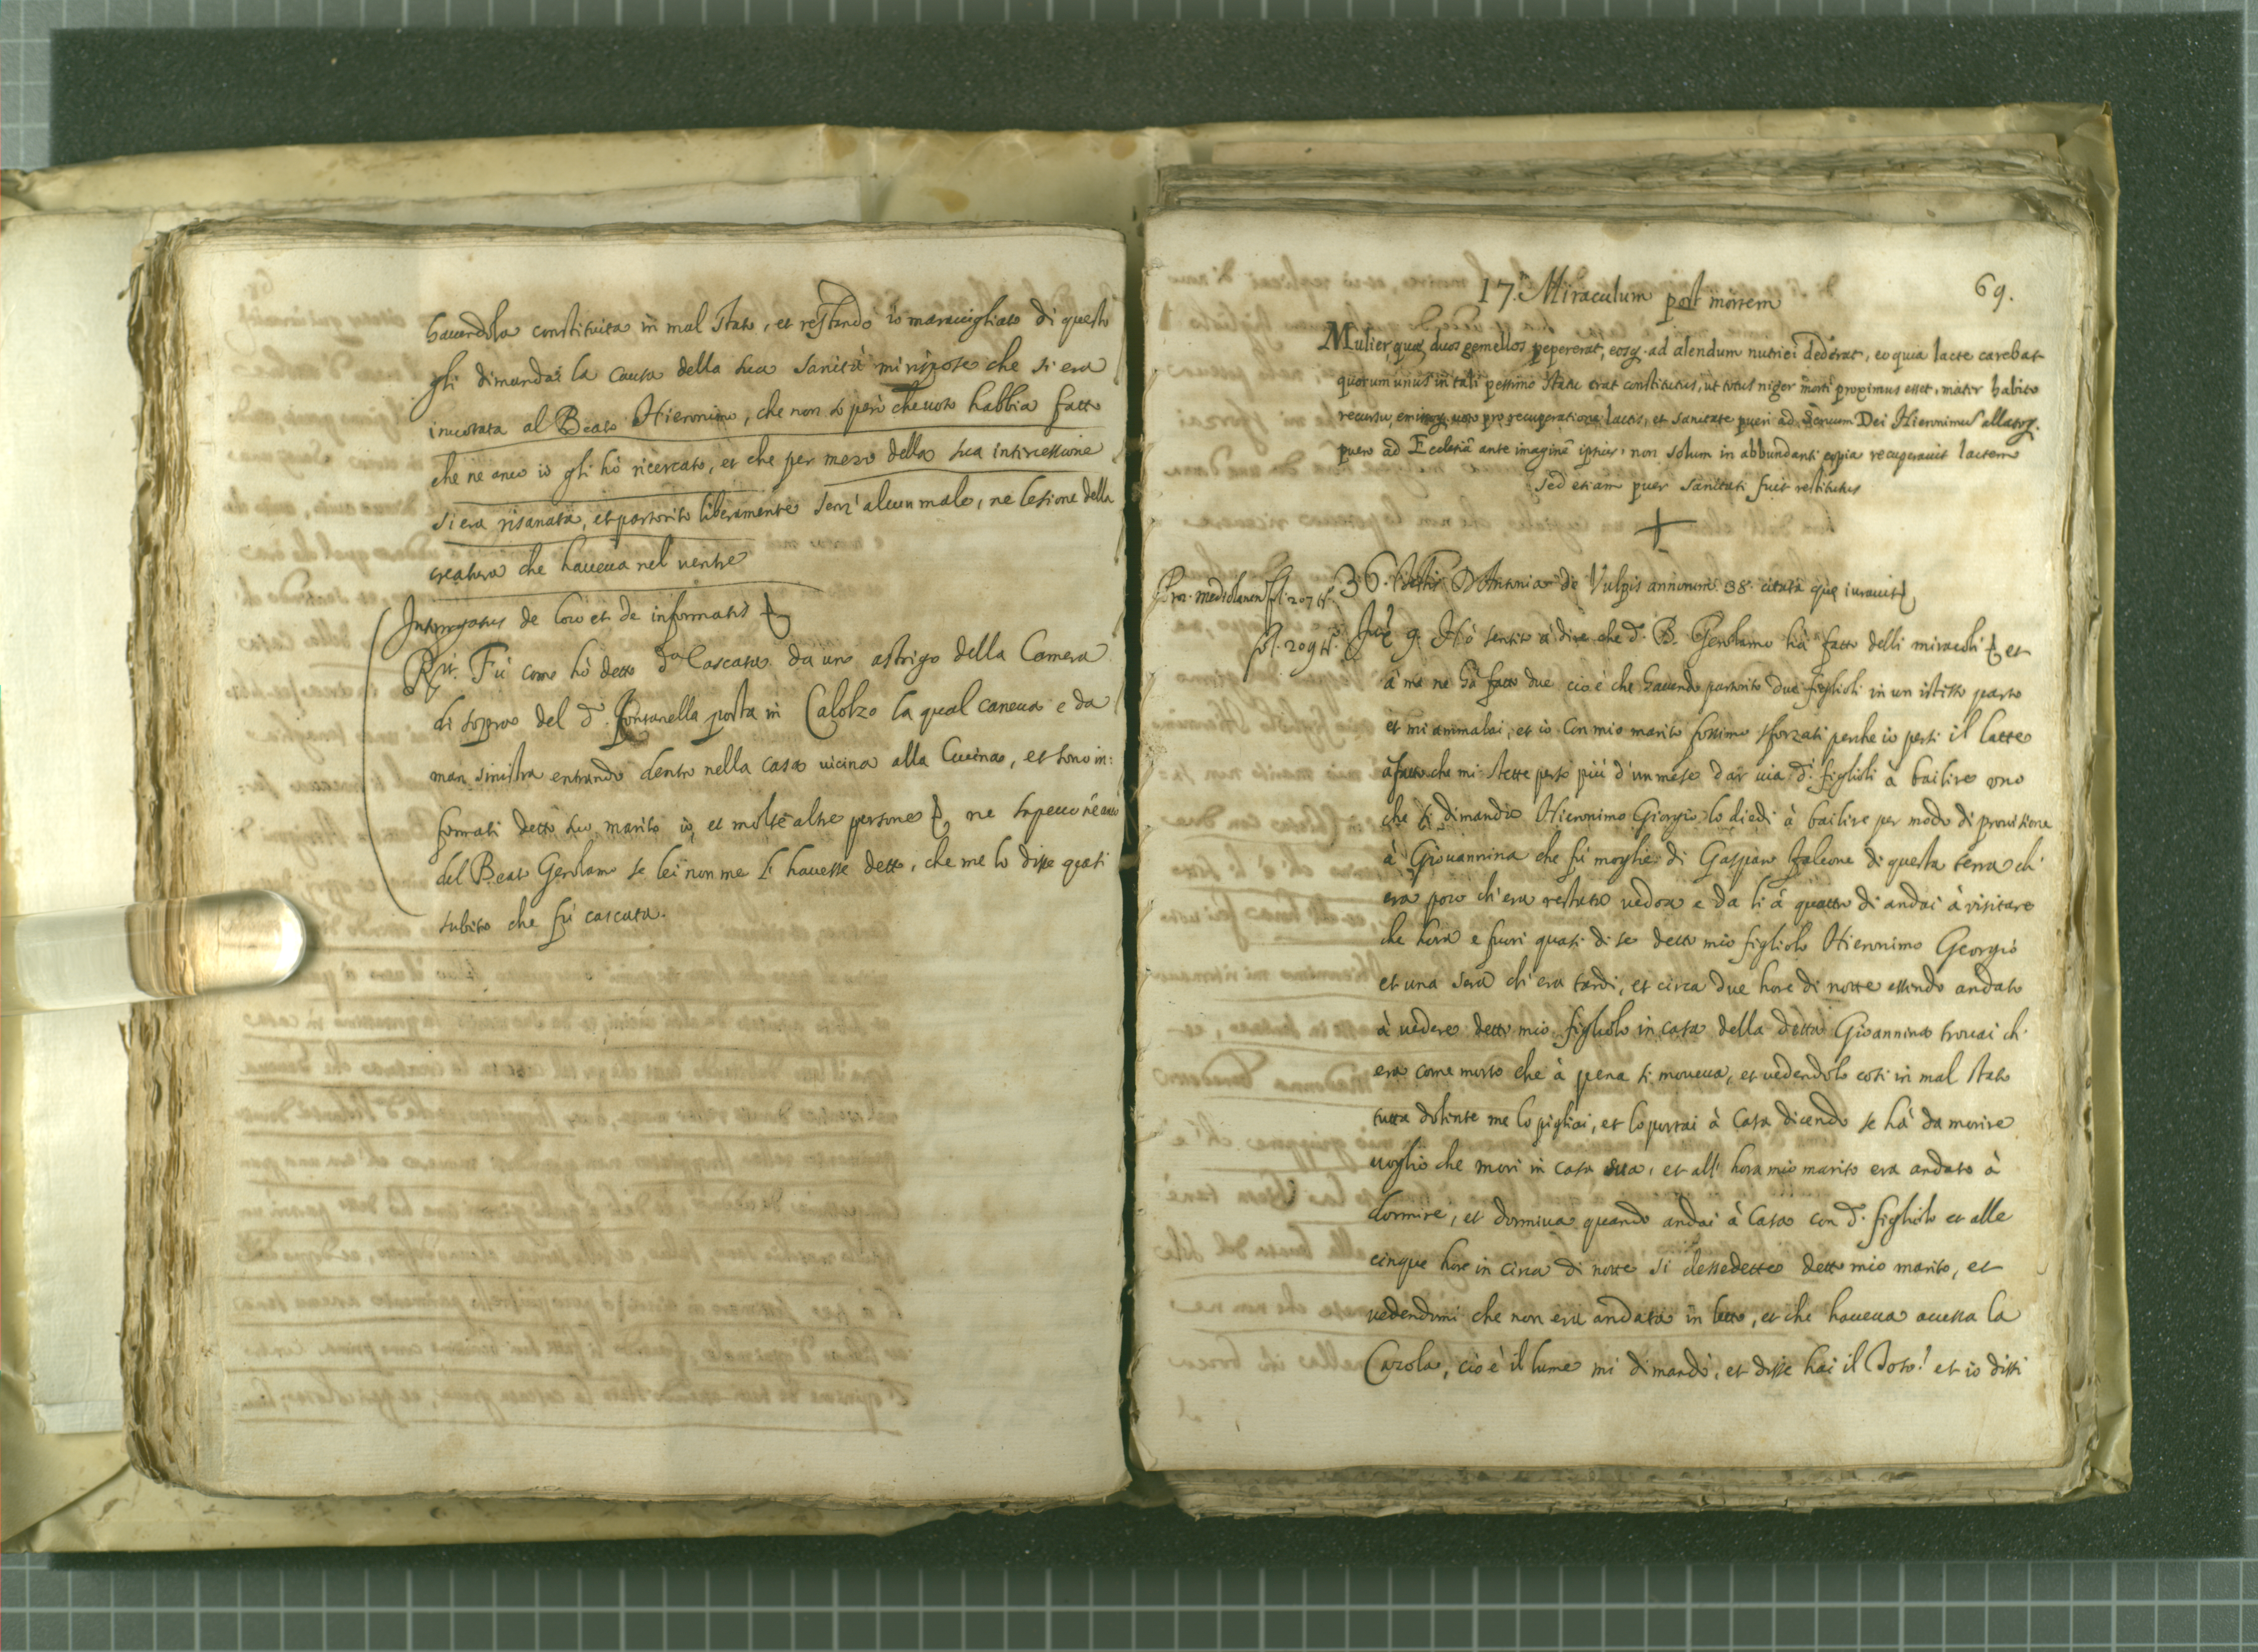 havendola constituita in mal stato, et restando io maravigliato di questo
gli dimandai la causa della sua sanità mi rispose che si era
invotata al Beato Hieronimo, che non so però che voto habbia fatto
che ne anco io gli hò ricercato, et che per mezo della sua intercessione
si era risanata, et partorito liberamente senz'alcun male, ne lesione della
creatura che haveva nel ventre
Interrogatus de loco et de informatis
Rit. Fù come hò detto d.a cascata da uno astrigo della Camera
di sopra del d. fontanella posta in Calolzo la qual caneva e da
man sinistra entrando dentro nella casa vicina alla Cucina, et sono in:
formati detto suo marito io, et molte altre persone ne sapevo ne anco
del Beato Gerolamo se lei non me l'havesse detto, che me lo disse quasi
subito che fù cascata.
69.
17. Miraculum post mortem
Mulier, quae duos gemellos pepererat, eosq. ad alendum nutrici dederat, eo quia lacte carebat
quorum unus in tali pessimo statu erat constitutus, ut totus niger morti proximus esset, mater habito
recursu, emissoq. voto pro recuperatione lactis, et sanitate pueri ad Servum Dei Hieronimum allatoq.
puero ad Ecclesiã ante imaginẽ ipsius, non solum in abbundanti copia recuperavit lactem
sed etiam puer sanitati fuit restitutus
Proc. Mediolanen fol. 207 tº. 36. Testis D. Antonia de Vulpis annorum 38. citata que iuravit
fol. 209 tº. Iux.ª 9. Hò sentito à dire che d. B. Gerolamo hà fatto delli miracoli et
à me ne hà fatto due cioè che havendo partorito due figlioli in un istesso parto
et mi ammalai, et io con mio marito fossimo sforzati perche io persi il latte
afatto che mi stette perso più d'un mese dar via d. figlioli à bailire uno
che si dimanda Hieronimo Giorgio lo diedi à bailire per modo di provisione
à Giovannina che fù moglie di Gaspano Faleone di questa terra ch'
era poco ch'era restata vedoa e da lì à quattro di andai à visitare
che hera e fuori quasi di se detto mio figliolo Hieronimo Georgio
et una sera ch'era tardi, et circa due hore di notte essendo andato
à vedere detto mio figliolo in casa della detta Gioannina trovai ch'
era come morto che à pena si moveva, et vedendolo così in mal stato
tutta dolente me lo pigliai, et lo portai à Casa dicendo se hà da morire
voglio che mori in casa sua, et all'hora mio marito era andato à
dormire, et dormiva quando andai à Casa con d. figliolo et alle
cinque hore in circa di notte si dessedette detto mio marito, et
vedendomi che non era andata in letto, et che haveva accessa la
Cazola, cio è il lume mi dimandò, et disse hai il Toso? et io dissi